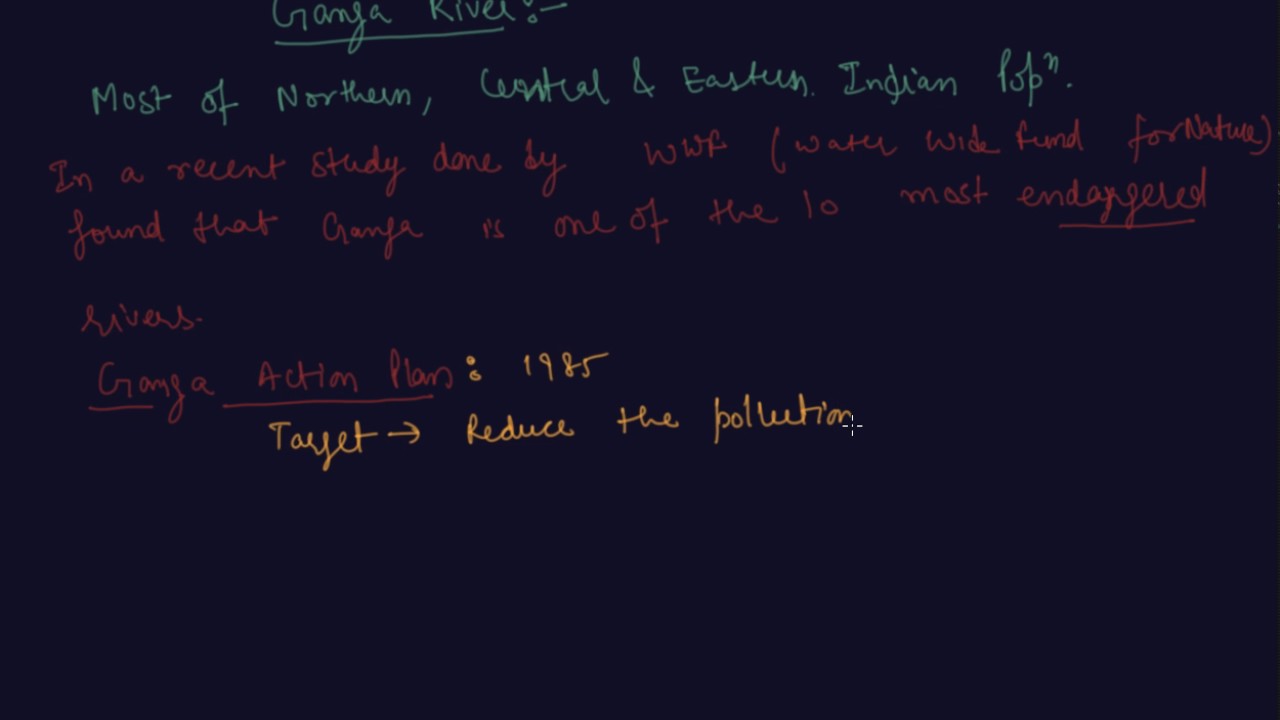 Ganga River:-
Most of Northern, Central & Eastern. Indian Popⁿ.
In a recent study done by WWF (water wide fund for Nature)
found that Ganga is one of the 10 most endangered
rivers.
Ganga Action Plan: 1985
Target → Reduce the pollution